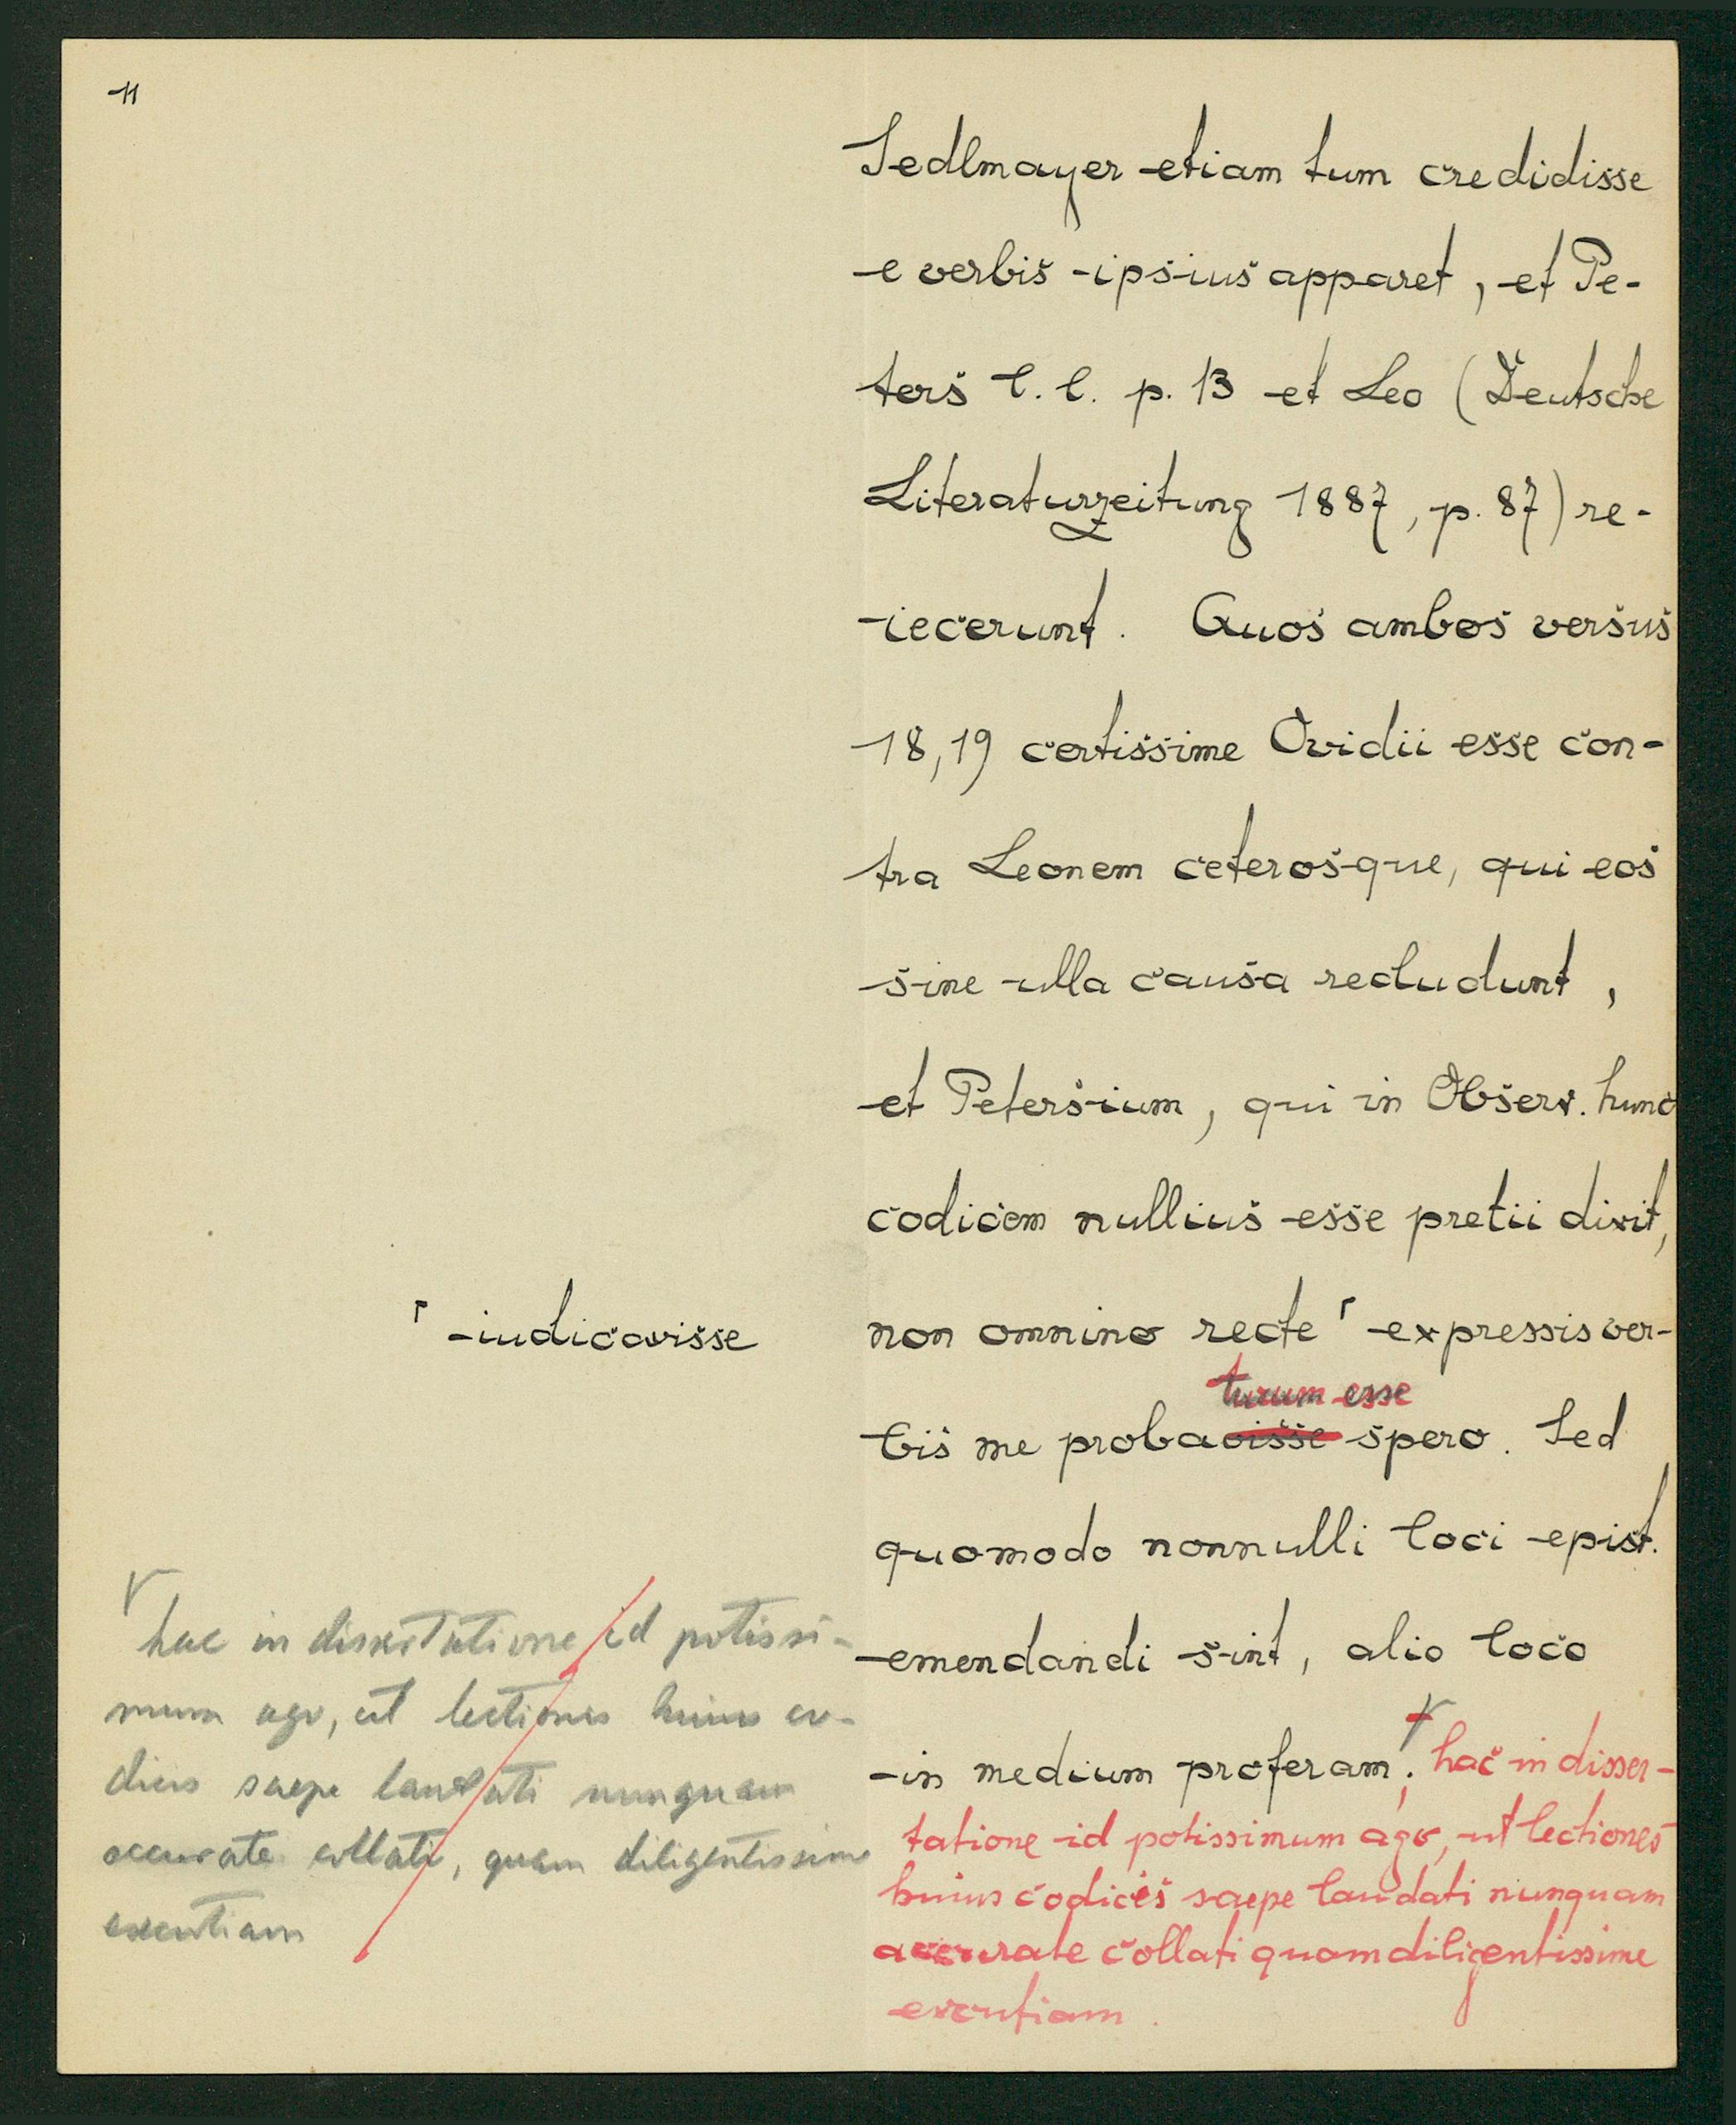 11
Sedlmayer etiam tum credidisse
e verbis ipsius apparet, et Pe-
ters l. l. p. 13 et Leo (Deutsche
Literaturzeitung 1887, p. 87) re-
iecerunt. Quos ambos versus
18,19 certissime Ovidii esse con-
tra Leonem ceterosque, qui eos
sine ulla causa recludunt,
et Petersium, qui in Observ. hunc
codicem nullius esse pretii dixit,
non omnino recte ┌ expressis ver-
┌ iudicavisse
turum esse
bis me probavisse spero. Sed
quomodo nonnulli loci epist.
emendandi sint, alio loco
in medium proferam; hac in disser-
tatione id potissimum ago, ut lectiones
huius codicis saepe laudati nunquam
accurate collati quam diligentissime
excutiam.
hac in dissertatione id potissi-
mum ago, ut lectiones huius co-
dicis saepe laudati nunquam
accurate collati, quam diligentissime
excutiam